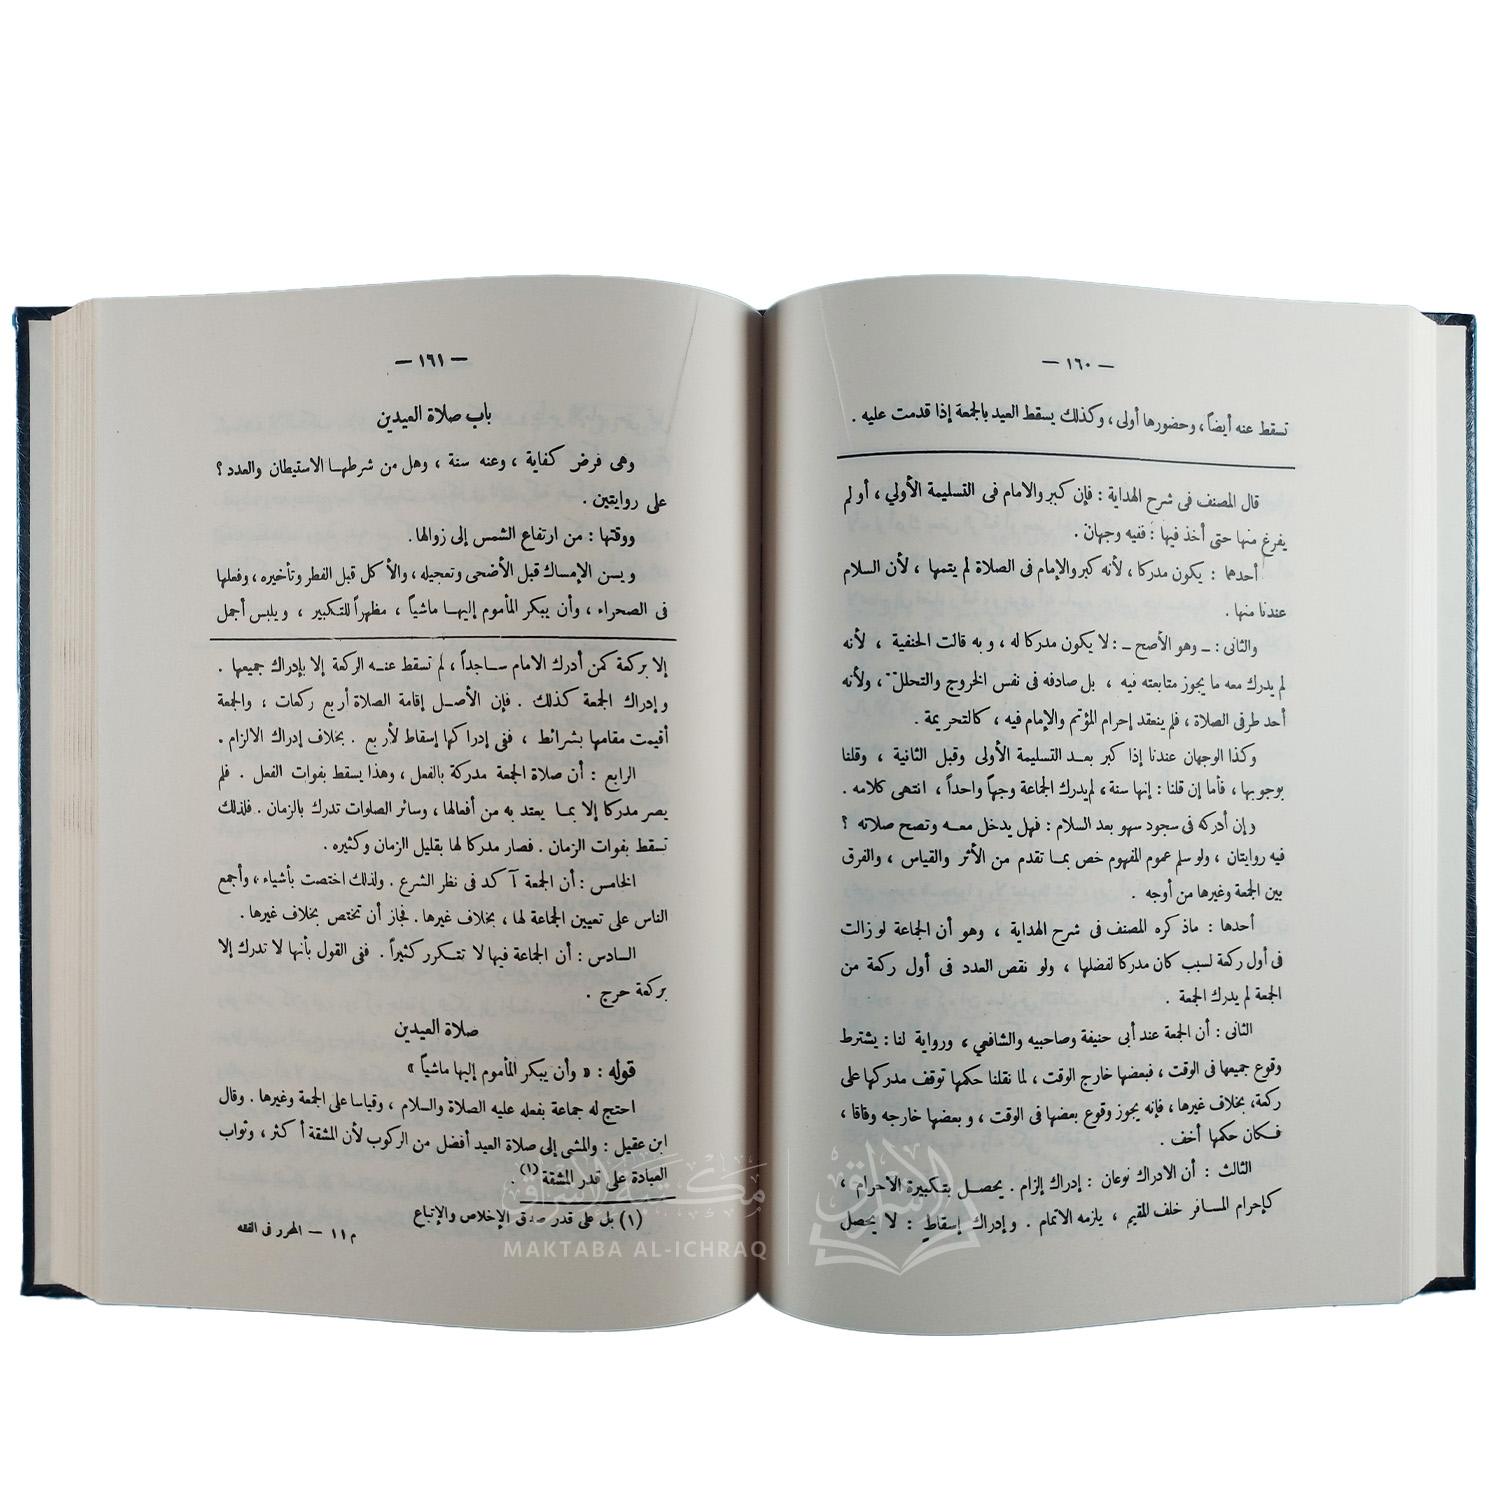 — ١٦٠ —
تسقط عنه أيضاً ، وحضورها أولى ، وكذلك يسقط العيد بالجمعة إذا قدمت عليه .
قال المصنف فى شرح الهداية : فإن كبر والامام فى التسليمة الأولي ، أو لم
يفرغ منها حتى أخذ فيها : ففيه وجهان .
أحدهما : يكون مدركا ، لأنه كبر والإمام فى الصلاة لم يتمها ، لأن السلام
عندنا منها .
والثانى : ــ وهو الأصح ــ : لا يكون مدركا له ، و به قالت الحنفية ، لأنه
لم يدرك معه ما يجوز متابعته فيه ، بل صادفه فى نفس الخروج والتحلل ، ولأنه
أحد طرفى الصلاة ، فلم ينعقد إحرام المؤتم والإمام فيه ، كالتحريمة .
وكذا الوجهان عندنا إذا كبر بعد التسليمة الأولى وقبل الثانية ، وقلنا
بوجوبها ، فأما إن قلنا : إنها سنة ، لم يدرك الجماعة وجهاً واحداً ، انتهى كلامه .
وإن أدركه فى سجود سهو بعد السلام : فهل يدخل معه وتصح صلاته ؟
فيه روايتان ، ولو سلم عموم المفهوم خص بما تقدم من الأثر والقياس ، والفرق
بين الجمعة وغيرها من أوجه .
أحدها : ماذكره المصنف فى شرح الهداية ، وهو أن الجماعة لو زالت
فى أول ركعة لسبب كان مدركا لفضلها ، ولو نقص العدد فى أول ركعة من
الجمعة لم يدرك الجمعة .
الثانى : أن الجمعة عند أبى حنيفة وصاحبيه والشافعي ، ورواية لنا : يشترط
وقوع جميعها فى الوقت ، فبعضها خارج الوقت ، لما نقلنا حكمها توقف مدركها على
ركعة ، بخلاف غيرها ، فإنه يجوز وقوع بعضها فى الوقت ، و بعضها خارجه وفاقا ،
فكان حكمها أخف .
الثالث : أن الادراك نوعان : إدراك إلزام . يحصل بتكبيرة الأحرام ،
كإحرام المسافر خلف المقيم ، يلزمه الاتمام . و إدراك إسقاط : لا يحصل
— ١٦١ —
باب صلاة العيدين
وهى فرض كفاية ، وعنه سنة ، وهل من شرطها الاستيطان والعدد ؟
على روايتين .
ووقتها : من ارتفاع الشمس إلى زوالها .
و يسن الإمساك قبل الأضحى وتعجيله ، والأكل قبل الفطر وتأخيره ، وفعلها
فى الصحراء ، وأن يبكر المأموم إليها ماشياً ، مظهراً للتكبير ، و يلبس أجمل
إلا بركعة كمن أدرك الامام ساجداً ، لم تسقط عنه الركعة إلا بإدراك جميعها .
و إدراك الجمعة كذلك . فإن الأصل إقامة الصلاة أربع ركعات ، والجمعة
أقيمت مقامها بشرائط ، ففى إدراكها إسقاط لأربع . بخلاف إدراك الالزام .
الرابع : أن صلاة الجمعة مدركة بالفعل ، وهذا يسقط بفوات الفعل . فلم
يصر مدركا إلا بما يعتد به من أفعالها ، وسائر الصلوات تدرك بالزمان . فلذلك
تسقط بفوات الزمان . فصار مدركا لها بقليل الزمان وكثيره .
الخامس : أن الجمعة آكد فى نظر الشرع . ولذلك اختصت بأشياء ، وأجمع
الناس على تعيين الجماعة لها ، بخلاف غيرها . فجاز أن تختص بخلاف غيرها .
السادس : أن الجماعة فيها لا تتكرر كثيراً . ففى القول بأنها لا تدرك إلا
بركعة حرج .
صلاة العيدين
قوله : « وأن يبكر المأموم إليها ماشياً »
احتج له جماعة بفعله عليه الصلاة والسلام ، وقياسا على الجمعة وغيرها . وقال
ابن عقيل : والمشى إلى صلاة العيد أفضل من الركوب لأن المشقة أكثر ، وثواب
العبادة على قدر المشقة (١) .
(١) بل على قدر صدق الإخلاص والإتباع
م ١١ — المحرر فى الفقه
مكتبة الإشراق
MAKTABA AL-ICHRAQ
الإشراق